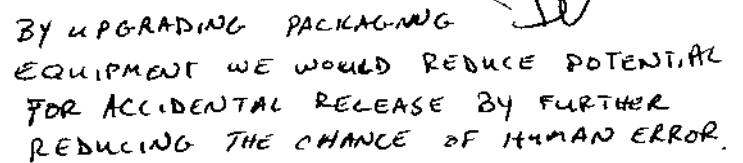 BY UPGRADING PACKAGNNG
EQUIPMENT WE WOULD REDUCE POTENTIAL
FOR ACCIDENTAL RELEASE BY FURTHER
REDUCING THE CHANCE OF HUMAN ERROR.